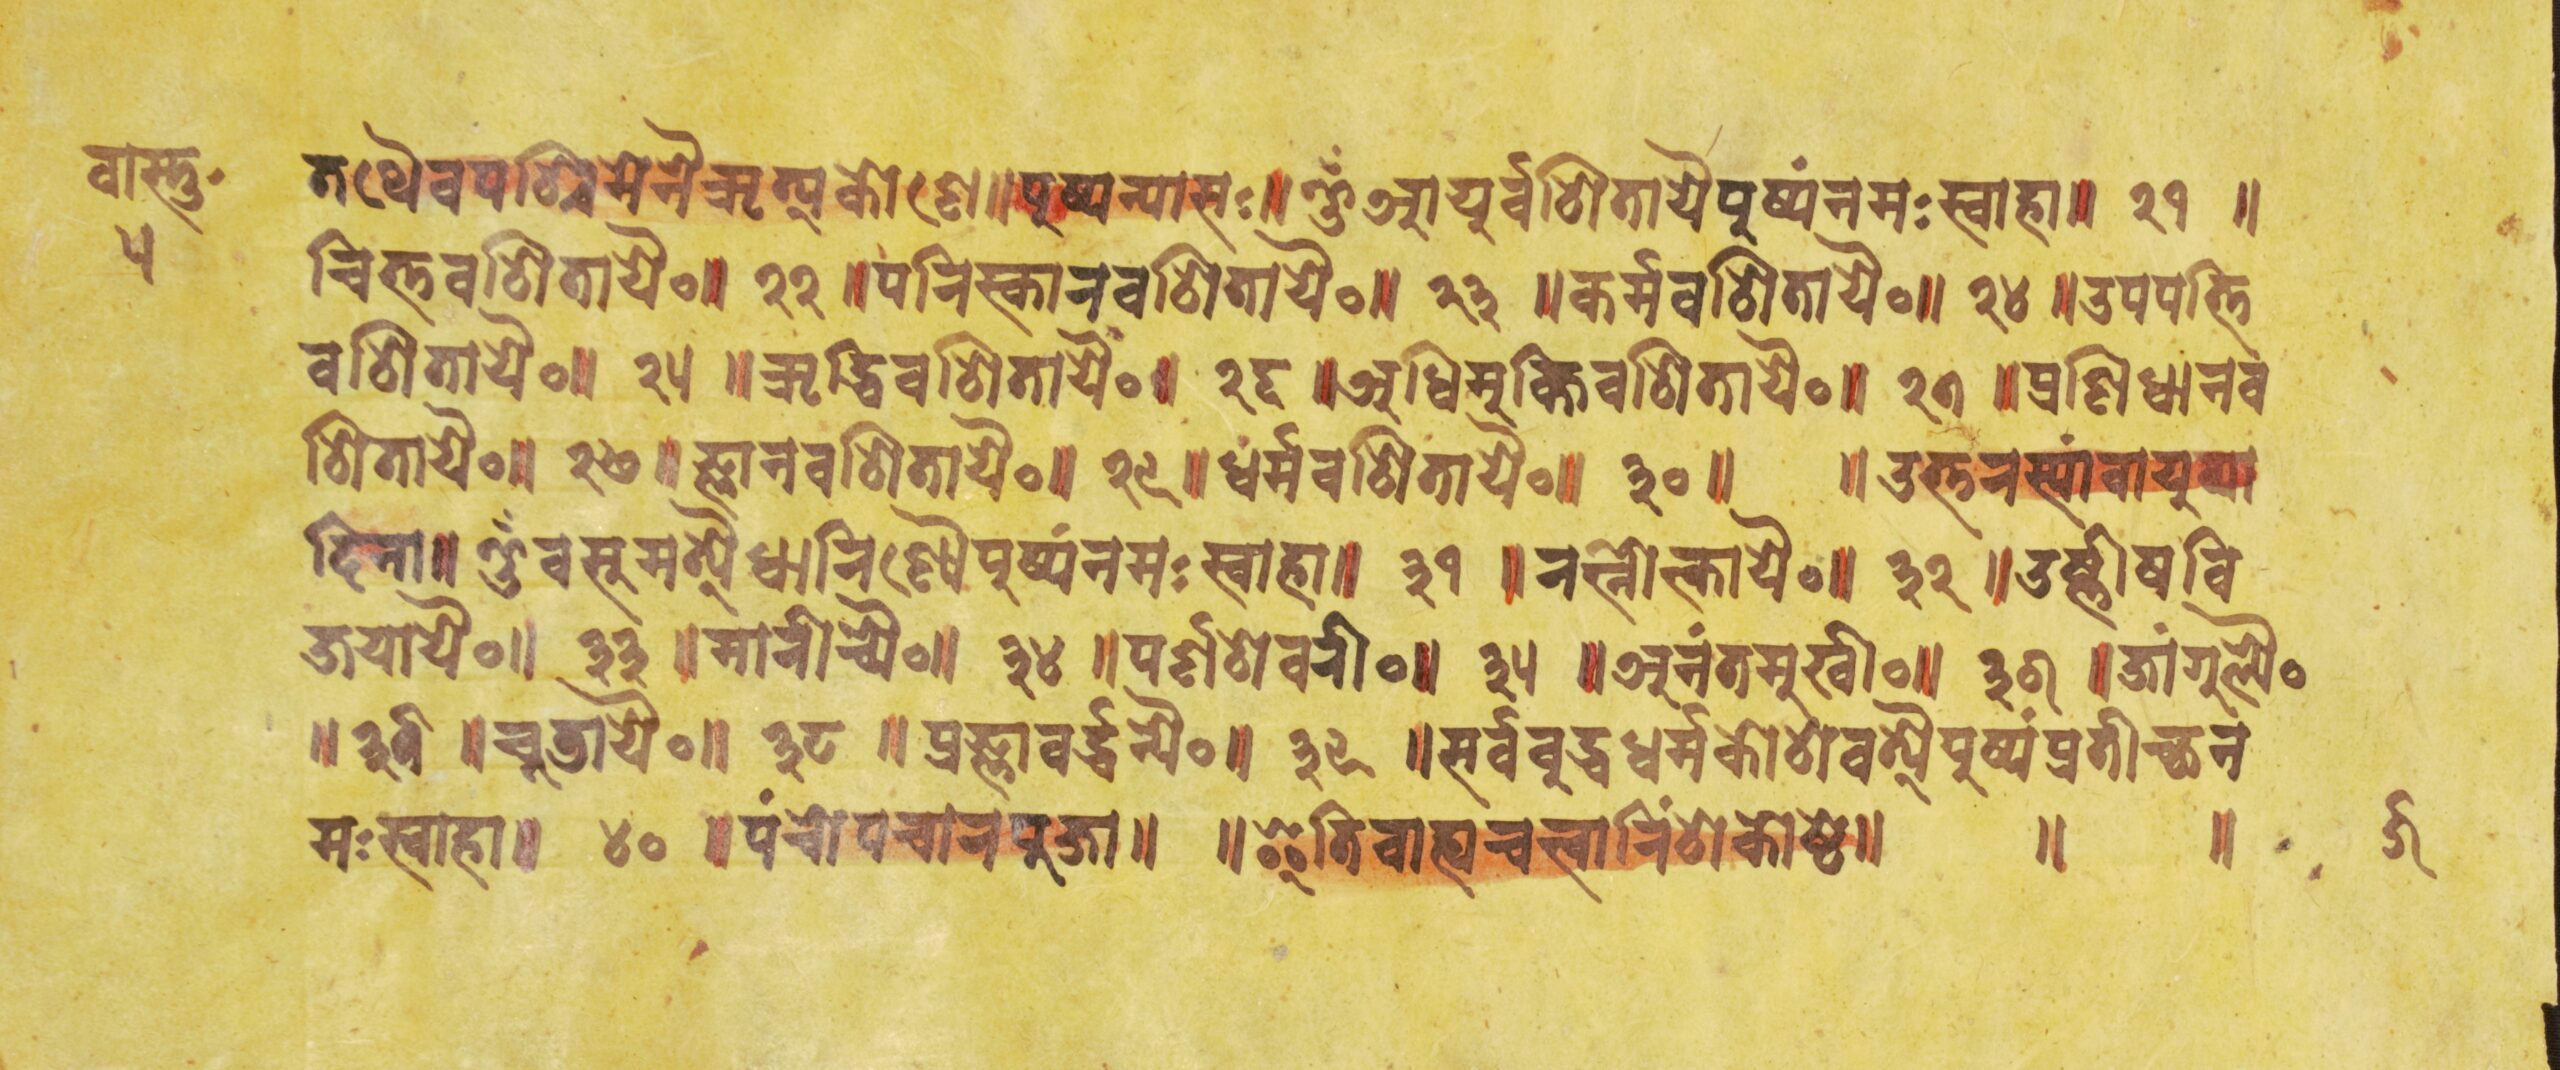 वास्तु॰
५
तथैवपश्चिमेनैऋत्यकोणे॥पुष्पन्यासः॥ ॐआयुर्वशितायैपुष्पंनमःस्वाहा॥ २१ ॥
चित्तवशितायै॰॥ २२ ॥परिस्कारवशितायै॰॥ २३ ॥कर्मवशितायै॰॥ २४ ॥उपपत्ति
वशितायै॰॥ २५ ॥ऋद्धिवशितायै॰॥ २६ ॥अधिमुक्तिवशितायै॰॥ २७ ॥प्रणिधानव
शितायै॰॥ २८ ॥ज्ञानवशितायै॰॥ २९ ॥धर्मवशितायै॰॥ ३० ॥ ॥उत्तरस्यांवायुव्या
दिना॥ ॐवसुमत्यैधारिण्यैपुष्पंनमःस्वाहा॥ ३१ ॥रत्नोल्कायै॰॥ ३२ ॥उष्णीषवि
जयायै॰॥ ३३ ॥मारीच्यै॰॥ ३४ ॥पर्णशेवरी॰॥ ३५ ॥अनंतमुखी॰॥ ३६ ॥जांगुल्यै॰
॥ ३७ ॥चुन्द्रायै॰॥ ३८ ॥ प्रज्ञावर्द्धन्यै॰॥ ३९ ॥सर्वबुद्धधर्मकोशेवत्यैपुष्पंप्रतीच्छन
मःस्वाहा॥ ४० ॥पंचोपचारपुजा॥ ॥इतिवाह्यचत्वारिंशेकोष्ठे॥ ॥ ॥